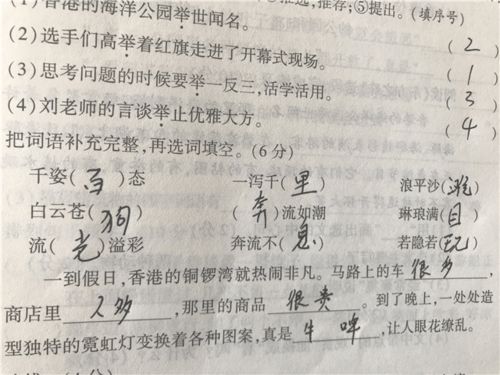 (1)香港的海洋公园举世闻名。 (2)
推荐;⑤提出。(填序号)
(2)选手们高举着红旗走进了开幕式现场。 (1)
(3)思考问题的时候要举一反三,活学活用。 (3)
(4)刘老师的言谈举止优雅大方。 (4)
把词语补充完整,再选词填空。(6分)
千姿(百)态 一泻千(里) 浪平沙(滩)
白云苍(狗) (奔)流如潮 琳琅满(目)
流(光)溢彩 奔流不(息) 若隐若(玩)
一到假日,香港的铜锣湾就热闹非凡。马路上的车 很多 ,
商店里 人多 ,那里的商品 很贵 。到了晚上,一处处造
型独特的霓虹灯变换着各种图案,真是 牛啤 ,让人眼花缭乱。